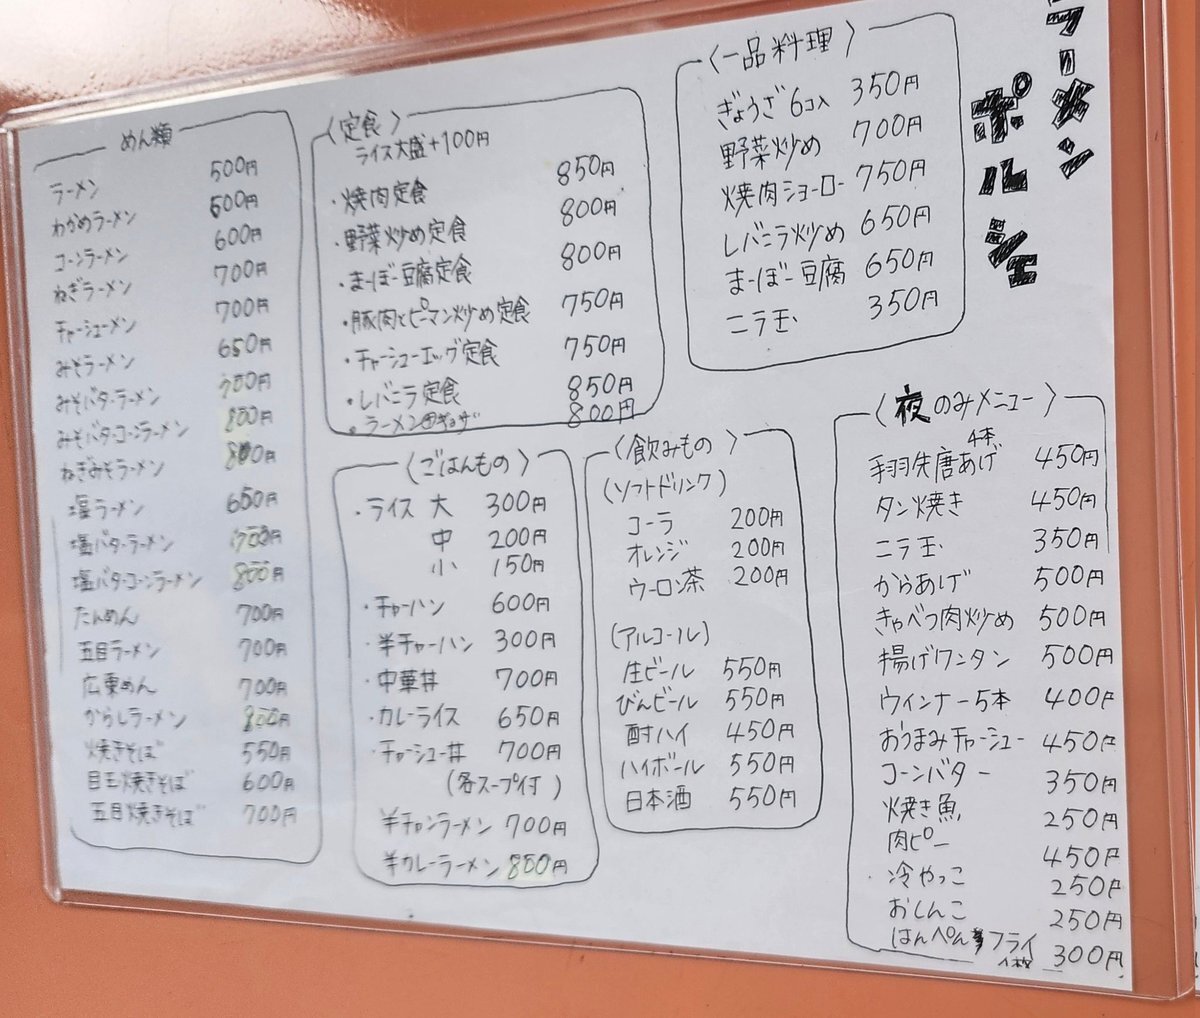 ラーメン
ポルシェ
めん類
ラーメン 500円
わかめラーメン 600円
コーンラーメン 600円
ねぎラーメン 700円
チャーシューメン 700円
みそラーメン 650円
みそバターラーメン 700円
みそバターコーンラーメン 800円
ねぎみそラーメン 800円
塩ラーメン 650円
塩バターラーメン 700円
塩バターコーンラーメン 800円
たんめん 700円
五目ラーメン 700円
広東めん 700円
からしラーメン 800円
焼きそば 550円
目玉焼きそば 600円
五目焼きそば 700円
〈定食〉
ライス大盛+100円
・焼肉定食 850円
・野菜炒め定食 800円
・まーぼー豆腐定食 800円
・豚肉とピーマン炒め定食 750円
・チャーシューエッグ定食 750円
・レバニラ定食 850円
・ラーメン+ギョーザ 800円
〈一品料理〉
ぎょうざ6コ入 350円
野菜炒め 700円
焼肉ショーロー 750円
レバニラ炒め 650円
まーぼー豆腐 650円
ニラ玉 350円
〈ごはんもの〉
・ライス 大 300円
中 200円
小 150円
・チャーハン 600円
・半チャーハン 300円
・中華丼 700円
・カレーライス 650円
・チャーシュー丼 700円
(各スープ付)
半チャンラーメン 700円
半カレーラーメン 800円
〈飲みもの〉
(ソフトドリンク)
コーラ 200円
オレンジ 200円
ウーロン茶 200円
(アルコール)
生ビール 550円
びんビール 550円
酎ハイ 450円
ハイボール 550円
日本酒 550円
〈夜のみメニュー〉
手羽先唐あげ 4本 450円
タン焼き 450円
ニラ玉 350円
からあげ 500円
きゃべつ肉炒め 500円
揚げワンタン 500円
ウィンナー5本 400円
おつまみチャーシュー 450円
コーンバター 350円
焼き魚 250円
肉ピー 450円
・冷やっこ 250円
おしんこ 250円
はんぺんフライ 1枚 300円